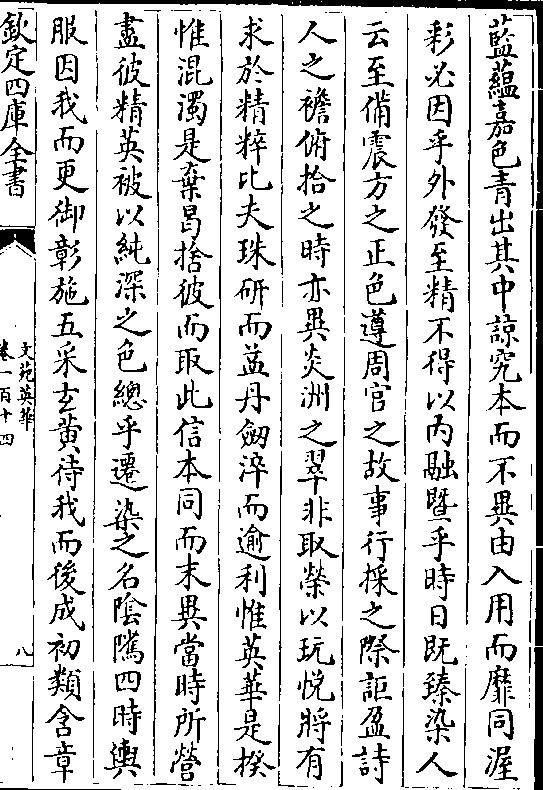 藍蘊嘉色青出其中諒究本而不異由入用而靡同渥
彩必因乎外發至精不得以內融暨乎時日既臻染人
云至備震方之正色遵周官之故事行採之際詎盈詩
人之襜俯拾之時亦異炎洲之翠非取榮以玩悅將有
求於精粹比夫珠研而益丹劒淬而逾利惟英華是揆
惟混濁是棄曷捨彼而取此信本同而末異當時所營
盡彼精英被以純深之色總乎遷染之名陰騭四時輿
服因我而更御彰施五采玄黃待我而後成初類含章
欽定四庫全書
文苑英華
卷一百十四
八